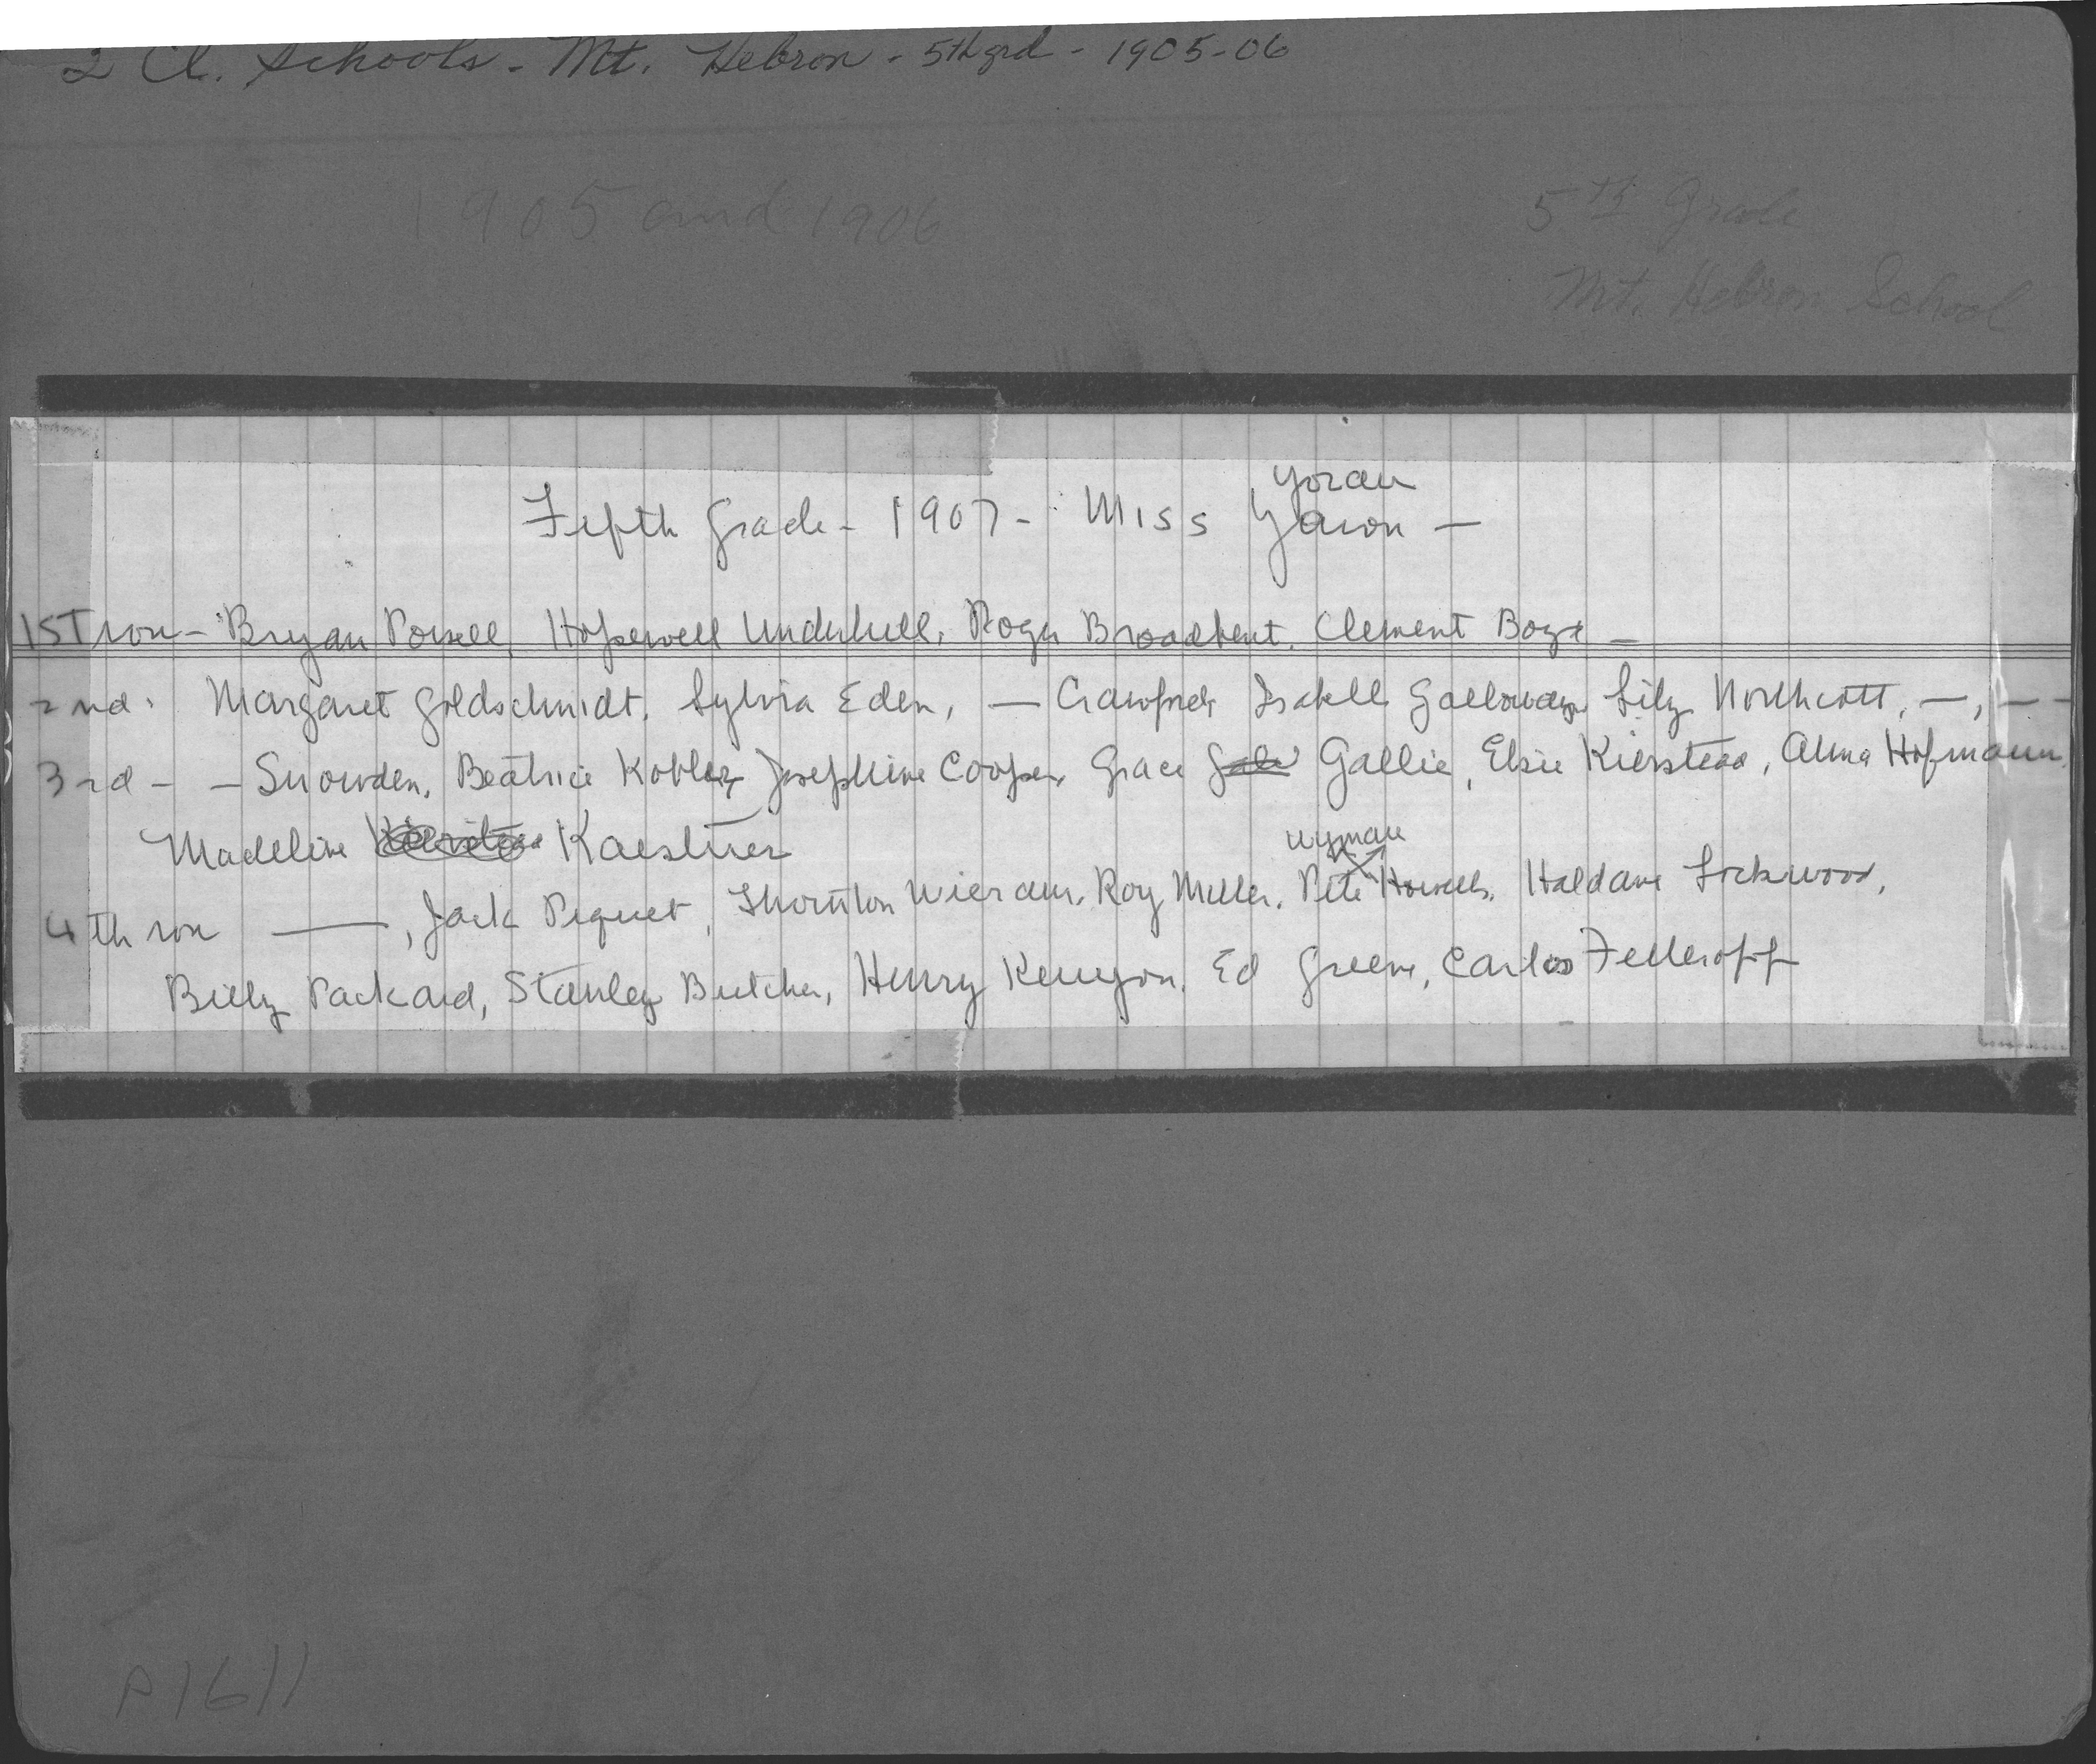 2 Cl. Schools - Mt. Hebron - 5th grd - 1905-06
1905 and 1906
5th Grade
Mt. Hebron School
Yoran
Fifth Grade - 1907 - Miss Yawon -
1ST row - Bryan Powell, Hopewell Underhill, Roger Broadbent, Clement Boyd -
2nd. Margaret Goldschmidt, Sylvia Eden, — Crawford, Isabell Galloway, Lily Northcott, —, — -
3rd - - Snowden, Beatrice Kobler, Josephine Cooper, Grace Gale Gallie, Elsie Kierstead, Alma Hofmann,
Madeline Kierstead Kaestner
Wyman
4th row —, Jack Piquet, Thornton Wieram, Roy Miller, Pete Howells, Haldane Lockwood,
Billy Packard, Stanley Butcher, Henry Kenyon, Ed Greene, Carlos Felleroff
P1611